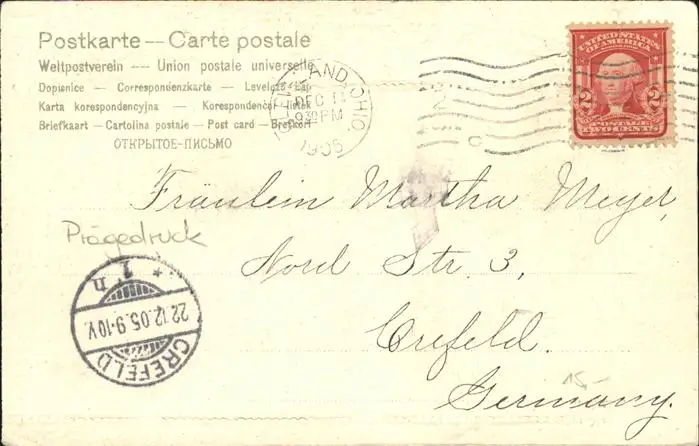 Postkarte -- Carte postale
Weltpostverein -- Union postale universelle
Dopisnice — Correspondenzkarte — Levelező-Lap
Karta korespondencyjna — Korespondenční lístek
Briefkaart — Cartolina postale — Post card — Brefkort
ОТКРЫТОЕ-ПИСЬМО
CLEVELAND, OHIO
DEC 11
930PM
1905
UNITED STATES
OF AMERICA
2 2
POSTAGE
TWO CENTS
Fräulein Martha Meyer,
Prägedruck
Nord Str. 3,
* 1 h
22.12.05.9-10V.
CREFELD
Crefeld.
15
Germany.